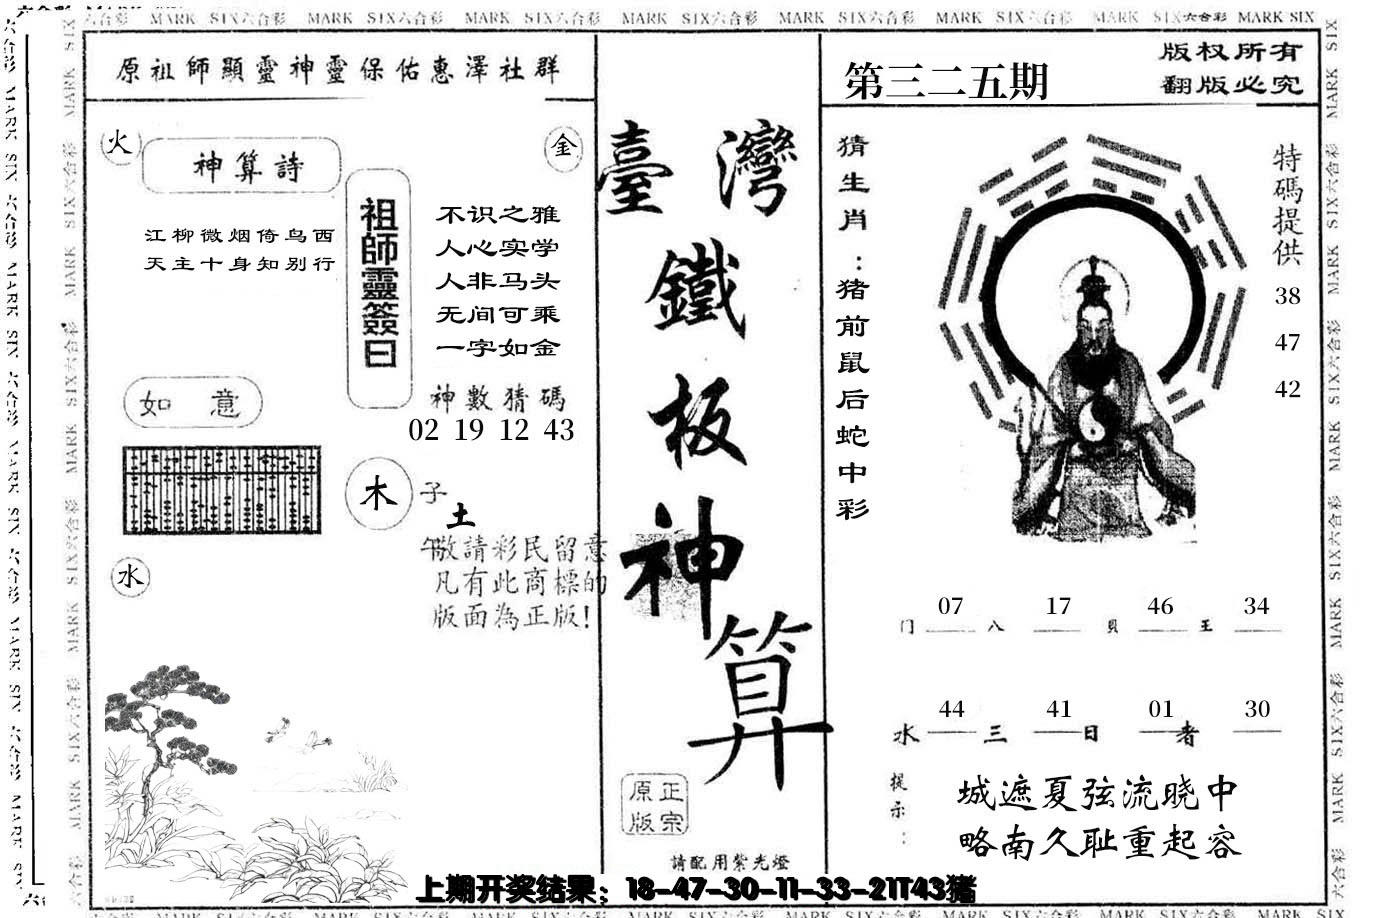 原祖師顯靈神靈保佑惠澤社群
火
金
神算詩
江柳微烟倚鸟西
天主十身知别行
祖師靈簽曰
不识之雅
人心实学
人非马头
无间可乘
一字如金
神數猜碼
02 19 12 43
如意
木
子
土
午
水
敬請彩民留意
凡有此商標的
版面為正版!
臺灣
鐵
板
神
算
正宗
原版
請配用紫光燈
第三二五期
版权所有
翻版必究
猜生肖：猪前鼠后蛇中彩
特碼提供
38
47
42
07 17 46 34
门 八 貝 王
44 41 01 30
水 三 日 者
提示：
城遮夏弦流晓中
略南久耻重起容
上期开奖结果：18-47-30-11-33-21T43猪
MARK SIX六合彩 MARK SIX六合彩 MARK SIX六合彩 MARK SIX六合彩 MARK SIX六合彩 MARK SIX六合彩 MARK SIX六合彩 MARK SIX